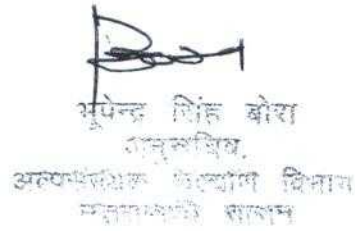 भूपेन्द्र सिंह बोरा
अनुसचिव,
अल्पसंख्यक कल्याण विभाग
शासन